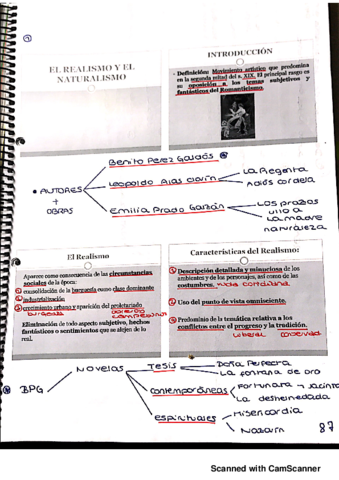 ①
EL REALISMO Y EL
NATURALISMO
INTRODUCCIÓN
- Definición: Movimiento artístico que predomina
en la segunda mitad del s. XIX. El principal rasgo es
su oposición a los temas subjetivos y
fantásticos del Romanticismo.
• AUTORES
+
OBRAS
Benito Perez Galdós
Leopoldo Alas Clarín
La Regenta
Adiós cordela
Emilia Prado Bazán
Los pazos
ulloa
La madre
naturaleza
El Realismo
Aparece como consecuencia de las circunstancias
sociales de la época:
① consolidación de la burguesía como clase dominante
② industrialización
③ crecimiento urbano y aparición del proletariado
burgueses
obreros
campesinos
Eliminación de todo aspecto subjetivo, hechos
fantásticos o sentimientos que se alejen de lo
real.
Características del Realismo:
① Descripción detallada y minuciosa de los
ambientes y de los personajes, así como de las
costumbres. vida cotidiana
② Uso del punto de vista omnisciente.
③ Predominio de la temática relativa a los
conflictos entre el progreso y la tradición.
liberal conservad
BPG
Novelas
Tesis
Doña Perfecta
La fontana de oro
contemporáneas
Fortunata y Jacinta
La desheredada
espirituales
Misericordia
Nazarín
87
Scanned with CamScanner